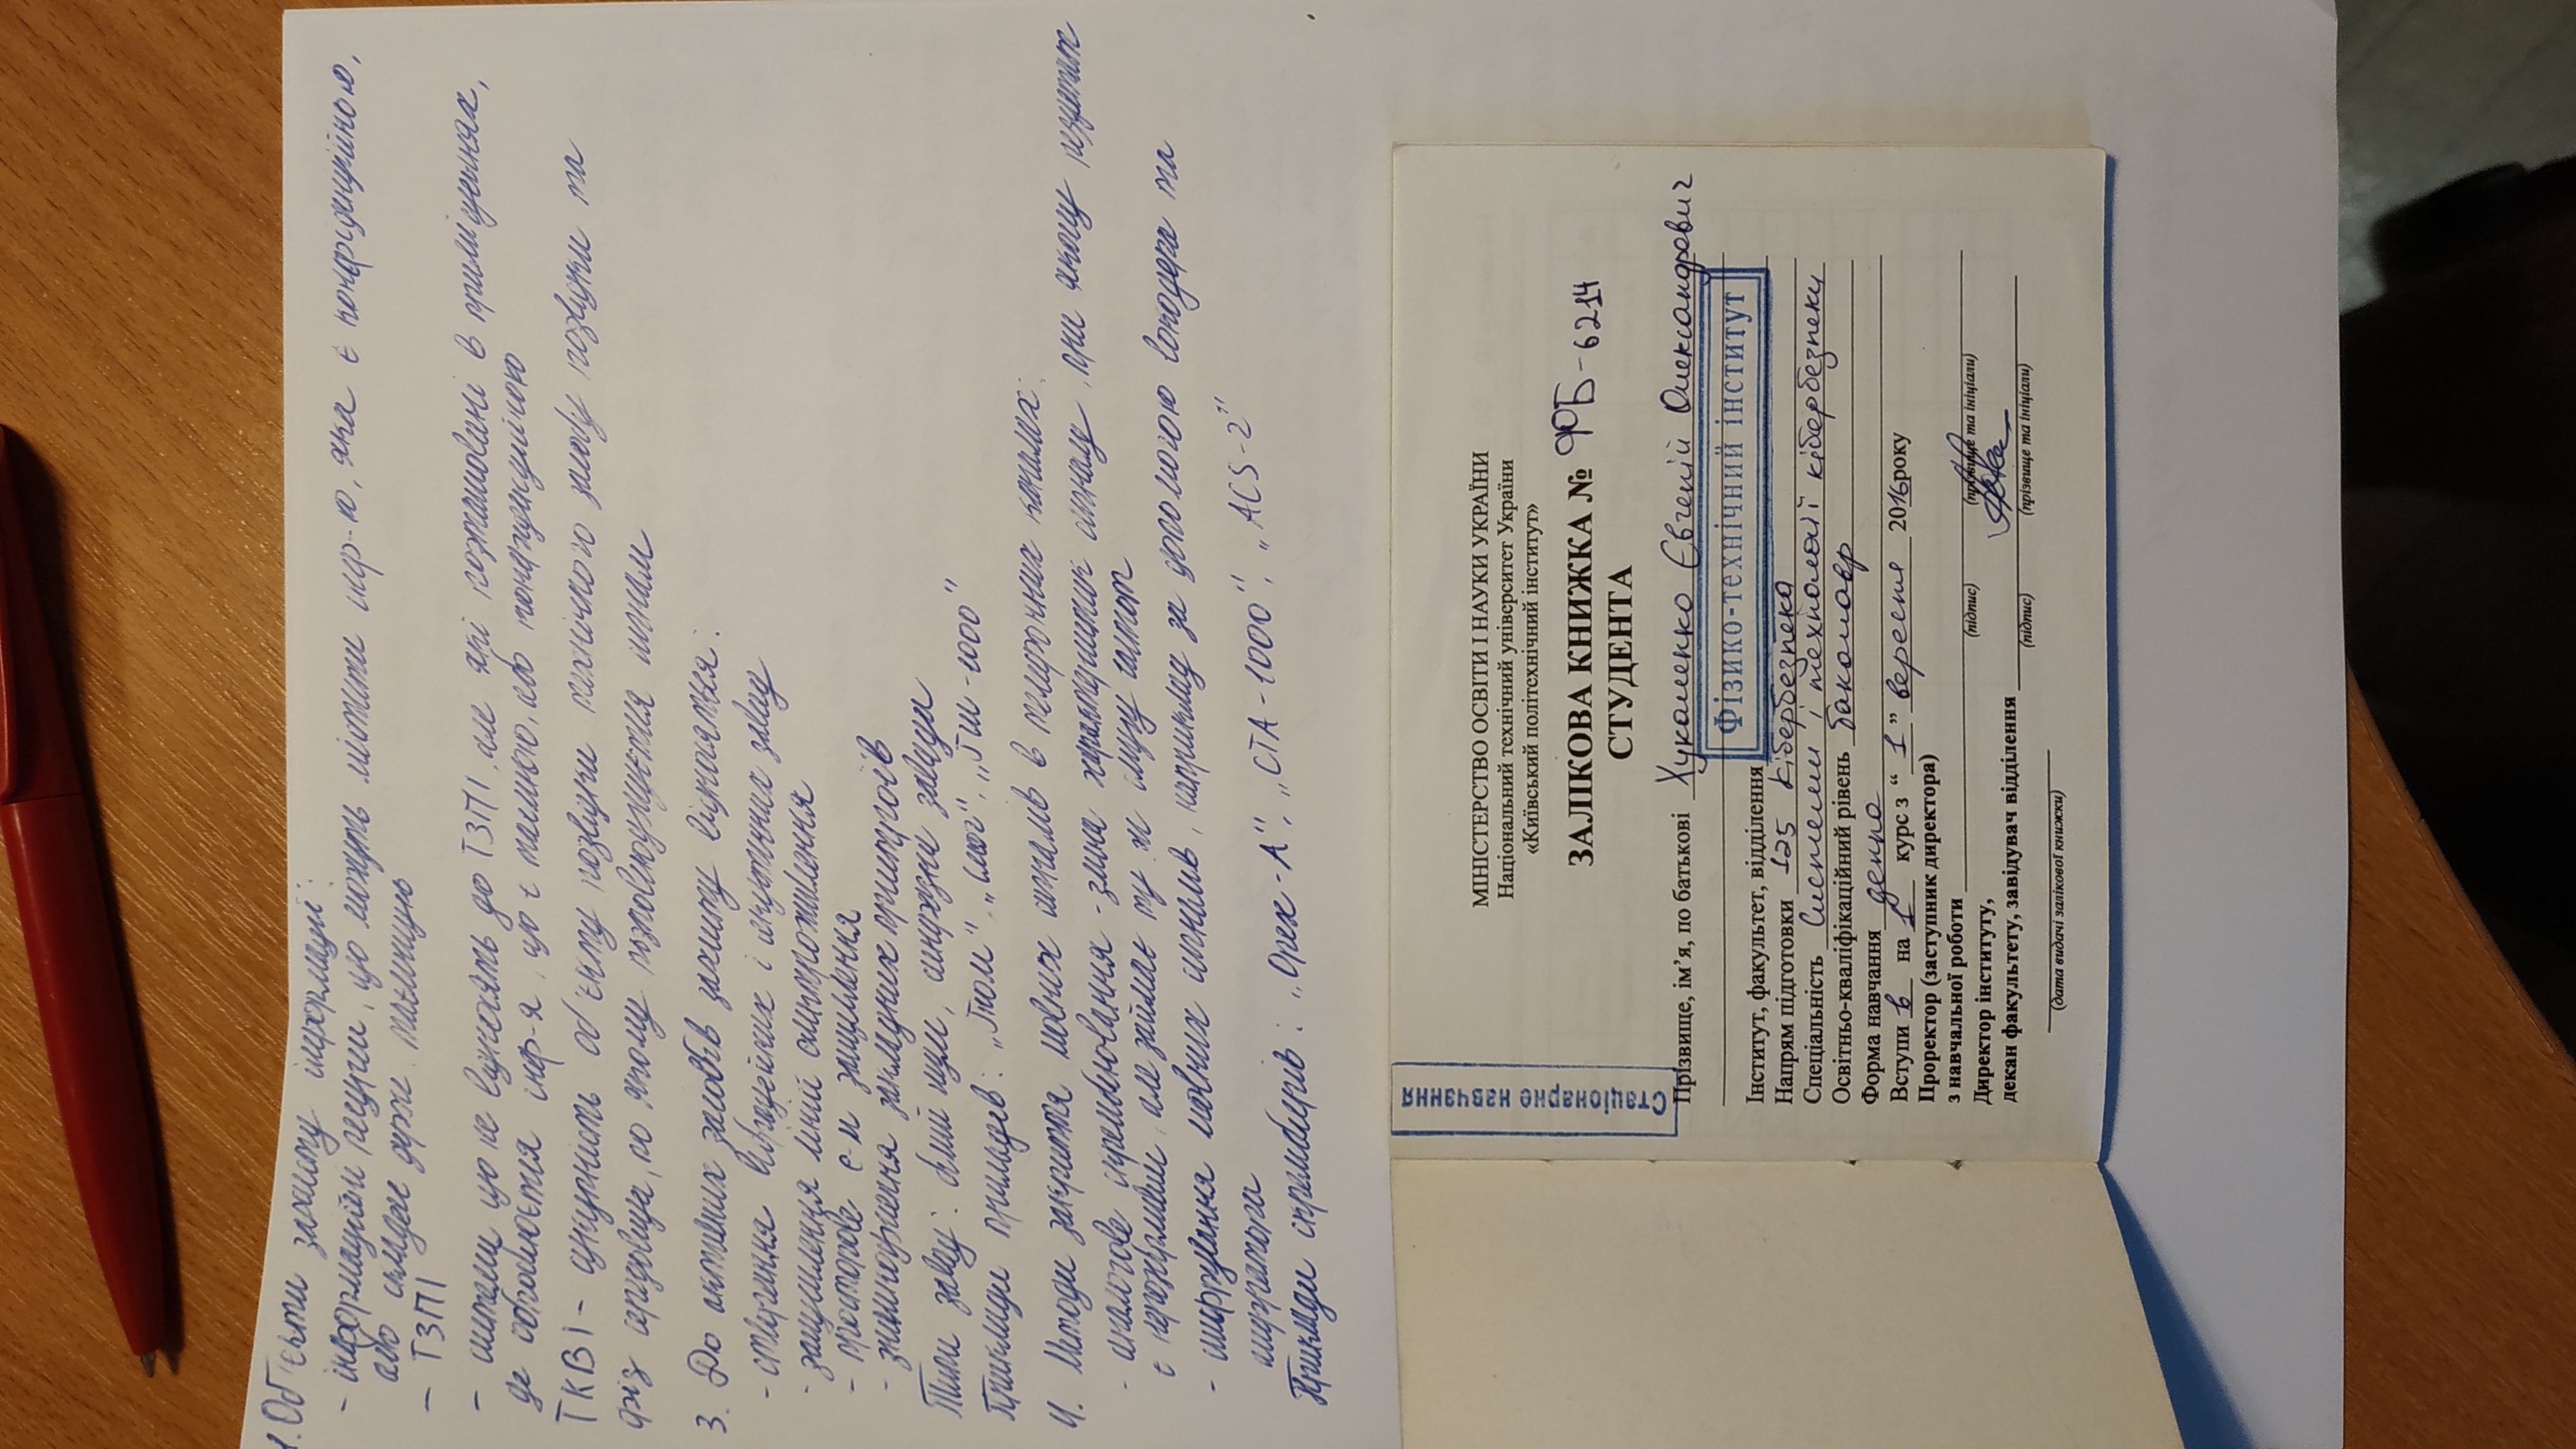 1. Об'єкти захисту інформації:
- інформаційні ресурси, що можуть містити інф-ю, яка є конфіденційною,
або складає держ. таємницю
- ТЗПІ
- системи що не відносять до ТЗПІ, але які розташовані в приміщеннях,
де обробляється інф-я, що є таємною, або конфіденційною
ТКВІ - сукупність об'єкту розвідки технічного засобу розвідки та
фіз середовища, по якому розповсюджується сигнал
3. До активних засобів захисту відносяться:
- створення вібраційних і акустичних завад
- зашумлення ліній електроживлення
- просторове е-м зашумлення
- знешкодження закладних пристроїв
Типи завад: білий шум, синфазні завади
Приклади приладів: „Гном", „Смог", „ГШ-1000"
4. Методи закриття мовних сигналів в телефонних каналах:
- аналогове скремблювання - зміна характеристик сигналу, при якому результат
є нерозбірливим, але займає ту ж смугу частот
- шифрування мовних сигналів, наприклад за допомогою вокодера та
шифратора
Приклади скремблерів: „Орех-А", „СТА-1000", „ACS-2"
Стаціонарне навчання
МІНІСТЕРСТВО ОСВІТИ І НАУКИ УКРАЇНИ
Національний технічний університет України
«Київський політехнічний інститут»
ЗАЛІКОВА КНИЖКА № ФБ-6214
СТУДЕНТА
Прізвище, ім'я, по батькові Хукаленко Євгеній Олександрович
Фізико-технічний інститут
Інститут, факультет, відділення
Напрям підготовки 125 Кібербезпека
Спеціальність Системи і технології кібербезпеки
Освітньо-кваліфікаційний рівень бакалавр
Форма навчання денна
Вступи в на 1 курс з “ 1 ” вересня 2016 року
Проректор (заступник директора)
з навчальної роботи
(підпис) (прізвище та ініціали)
Директор інституту,
декан факультету, завідувач відділення
(підпис) (прізвище та ініціали)
(дата видачі залікової книжки)